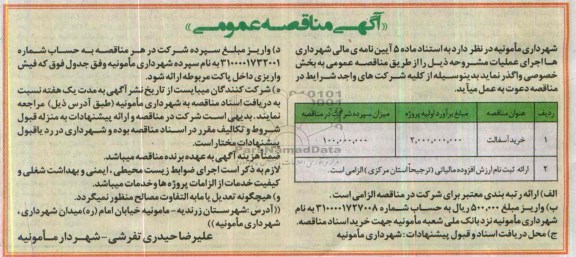 «آگهی مناقصه عمومی»
شهرداری مأمونیه در نظر دارد به استناد ماده ۵ آیین نامه ی مالی شهرداری
ها اجرای عملیات مشروحه ذیل را از طریق مناقصه عمومی به بخش
خصوصی واگذر نماید بدینوسیله از کلیه شرکت های واجد شرایط در
مناقصه دعوت به عمل می آید.
ردیف عنوان مناقصه مبلغ برآورد اولیه پروژه میزان سپرده شرکت در مناقصه
۱ خرید آسفالت ۲,۰۰۰,۰۰۰,۰۰۰ ۱۰۰,۰۰۰,۰۰۰
۲ ارائه ثبت نام ارزش افزوده مالیاتی (ترجیحاً استان مرکزی) الزامی است.
الف) ارائه رتبه بندی معتبر برای شرکت در مناقصه الزامی است.
ب) واریز مبلغ ۵۰۰,۰۰۰ ریال به حساب شماره ۳۱۰۰۰۰۱۷۲۷۰۰۸ به نام
شهرداری مأمونیه نزد بانک ملی شعبه مأمونیه جهت خرید اسناد مناقصه.
ج) محل دریافت اسناد و قبول پیشنهادات: شهرداری مأمونیه
د) واریز مبلغ سپرده شرکت در هر مناقصه به حساب شماره
۳۱۰۰۰۰۱۷۳۲۰۰۱ به نام سپرده شهرداری مأمونیه وفق جدول فوق که فیش
واریزی داخل پاکت مربوطه ارائه شود.
ه) شرکت کنندگان میبایست از تاریخ نشر آگهی به مدت یک هفته نسبت
به دریافت اسناد مناقصه به شهرداری مأمونیه (طبق آدرس ذیل) مراجعه
نمایند. بدیهی است شرکت در مناقصه و ارائه پیشنهادات به منزله قبول
شروط و تکالیف مقرر در اسناد مناقصه بوده و شهرداری در رد یا قبول
پیشنهادات مختار است.
ضمناً هزینه آگهی به عهده برنده مناقصه میباشد.
لازم به ذکر است اجرای ضوابط زیست محیطی، ایمنی و بهداشت شغلی و
کیفیت خدمات از الزامات پروژه ها و خدمات میباشد.
و) هیچگونه تعدیل یا مابه التفاوت مصالح منظور نمیگردد.
((آدرس: شهرستان زرندیه - مامونیه خیابان امام (ره) میدان شهرداری،
شهرداری مأمونیه))
علیرضا حیدری تفرشی - شهردار مأمونیه
ParsNamadData